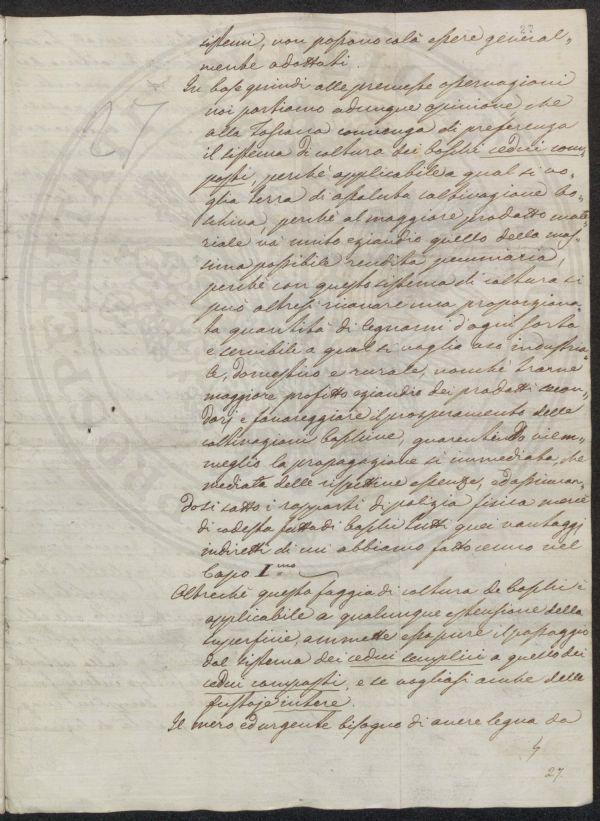 27
sistemi, non possono colà essere general=
mente adottati.
In base quindi alle premesse osservazioni
noi portiamo adunque opinione che
alla Toscana convenga di preferenza
il sistema di coltura dei boschi cedui com=
posti, perché applicabile a qual si vo=
glia terra di assoluta coltivazione bo=
schiva, perché al maggiore prodotto mate=
riale va unito eziandio quello della mas=
sima possibile rendita pecuniaria,
perché con questo sistema di coltura si
può altresì ricavare una proporziona=
ta quantità di legnami d'ogni sorta
e servibile a qual si voglia uso industria=
le, domestico e rurale, nonché trarne
maggiore profitto eziandio dei prodotti secon=
darj e favoreggiare il prosperamento delle
coltivazioni boschive, guarentendo viem=
meglio la propagazione sì immediata, che
mediata delle rispettive essenze, ed assicuran=
dosi sotto i rapporti di polizia fisica mercé
di codesta fatta di boschi tutti quei vantaggj
indiretti di cui abbiamo fatto cenno nel
Capo I.mo
Altreché questa foggia di coltura de boschi è
applicabile a qualunque estensione della
superficie, ammette essa pure il passaggio
dal sistema dei cedui semplici a quello dei
cedui composti, e se vogliasi anche delle
fustaje intere.
Il mero ed urgente bisogno di avere legna da
27
27
PROSPERITAS